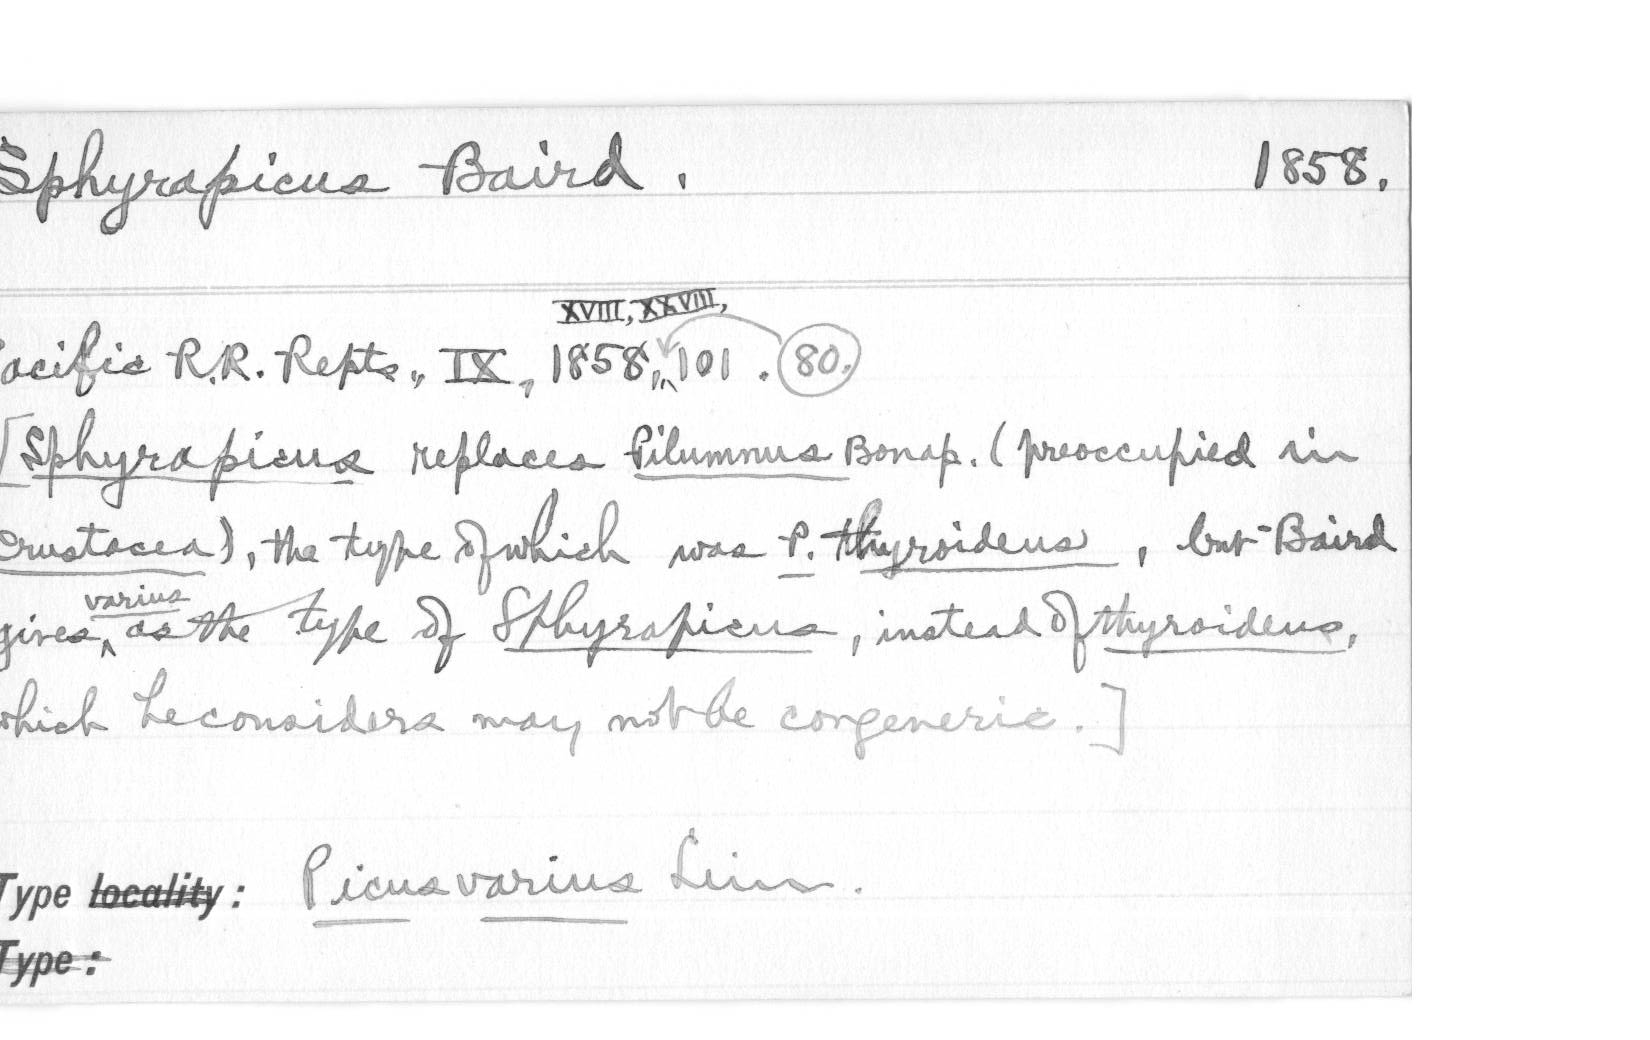 Sphyrapicus Baird. 1858.
XVIII, XXVIII,
Pacific R.R. Repts., IX, 1858, 101. 80.
[Sphyrapicus replaces Pilumnus Bonap. (preoccupied in
Crustacea), the type of which was P. thyroideus, but Baird
varius
gives as the type of Sphyrapicus, instead of thyroideus,
which he considers may not be congeneric.]
Type locality: Picus varius Linn.
Type: